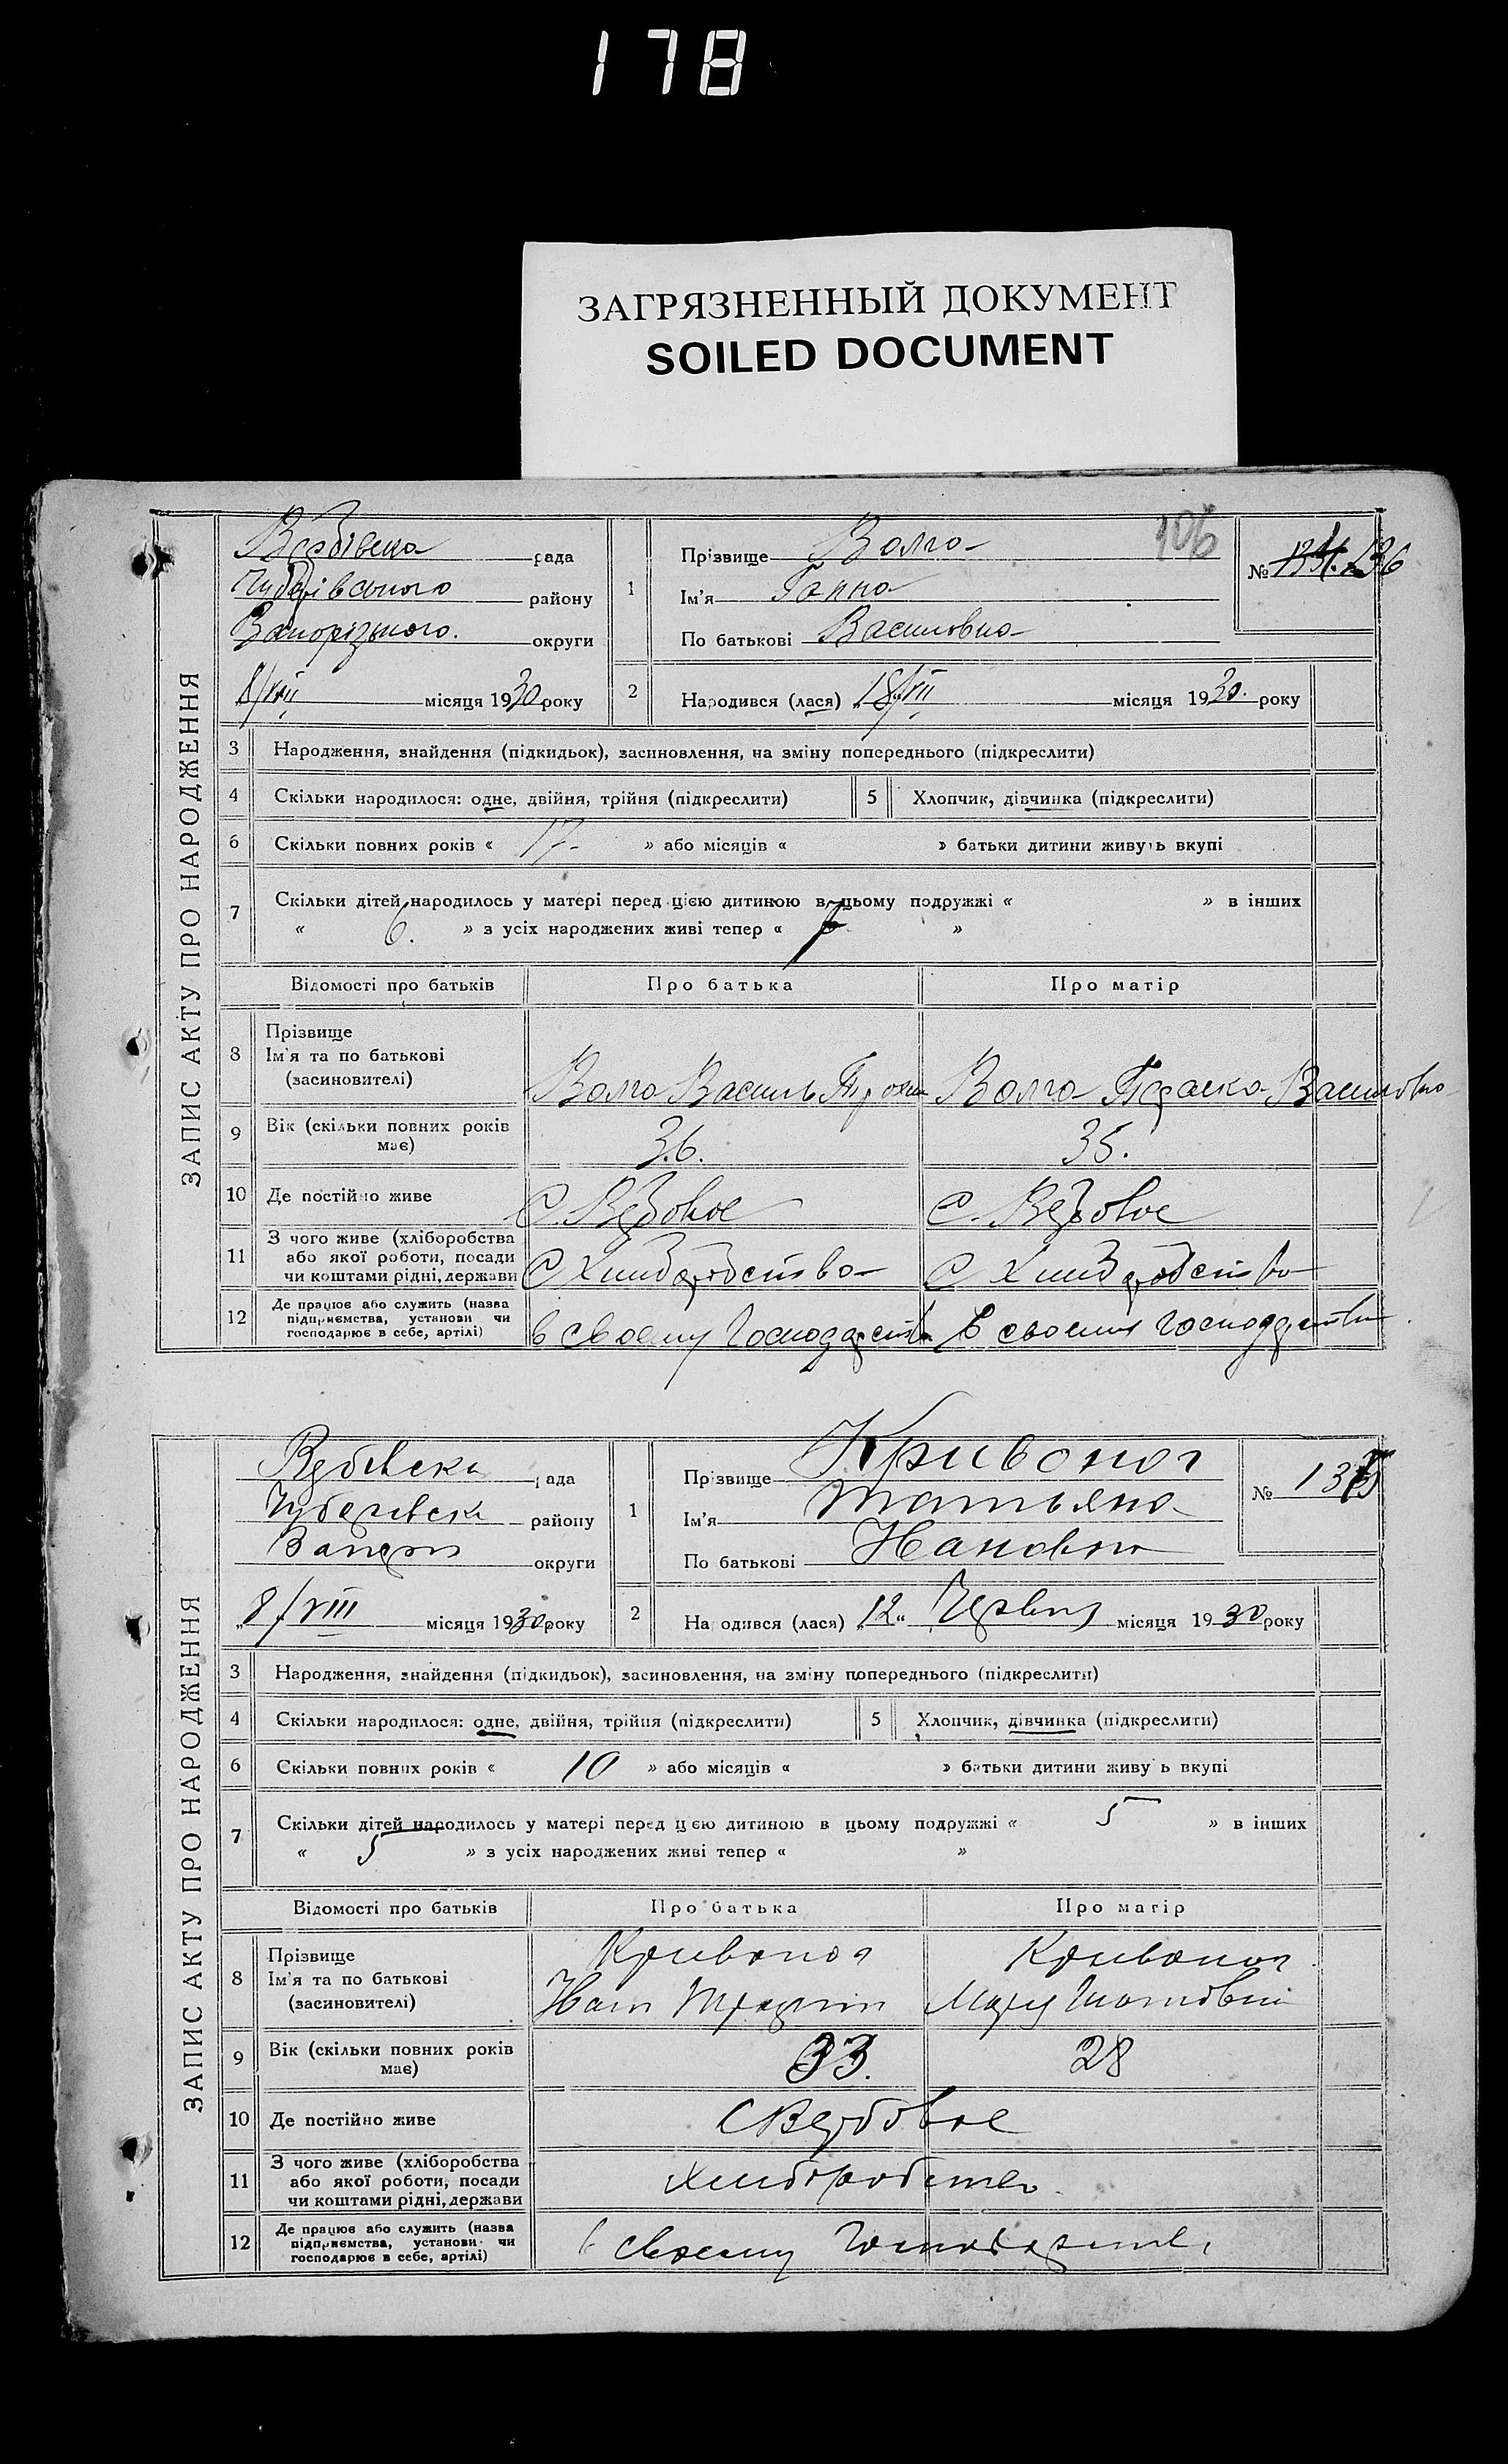 178
ЗАГРЯЗНЕННЫЙ ДОКУМЕНТ
SOILED DOCUMENT
ЗАПИС АКТУ ПРО НАРОДЖЕННЯ
Вербівська рада
Чубарівського району
Запорізького. округи
8/VIII місяця 1930 року
1
Прізвище Волго
106
Ім'я Ганна
По батькові Василовна
№ 136
2 Народився (лася) „18/VII місяця 1930. року
3 Народження, знайдення (підкидьок), засиновлення, на зміну попереднього (підкреслити)
4 Скільки народилося: одне, двійня, трійня (підкреслити) 5 Хлопчик, дівчинка (підкреслити)
6 Скільки повних років « 17 » або місяців « » батьки дитини живуть вкупі
7 Скільки дітей народилось у матері перед цією дитиною в цьому подружжі « » в інших
« 6. » з усіх народжених живі тепер « 7 »
Відомості про батьків Про батька Про матір
8 Прізвище
Ім'я та по батькові
(засиновителі)
Волго Василь Волго Параска Василовна
9 Вік (скільки повних років має) 36. 35.
10 Де постійно живе С. Вербовое С. Вербовое
11 З чого живе (хліборобства
або якої роботи, посади
чи коштами рідні, держави
С Хлиборобства С Хлиборобства
12 Де працює або служить (назва
підприємства, установи чи
господарює в себе, артілі)
в своему господарстві в своему господарстві
ЗАПИС АКТУ ПРО НАРОДЖЕННЯ
Вербівська рада
Чубарівськ району
Запоріз округи
8/VIII місяця 1930 року
1
Прізвище Кривоног
Ім'я Татьяна
По батькові Ивановна
№ 135
2 Народився (лася) „12„ Червня місяця 1930 року
3 Народження, знайдення (підкидьок), засиновлення, на зміну попереднього (підкреслити)
4 Скільки народилося: одне, двійня, трійня (підкреслити) 5 Хлопчик, дівчинка (підкреслити)
6 Скільки повних років « 10 » або місяців « » батьки дитини живуть вкупі
7 Скільки дітей народилось у матері перед цією дитиною в цьому подружжі « 5 » в інших
« 5 » з усіх народжених живі тепер « »
Відомості про батьків Про батька Про матір
8 Прізвище
Ім'я та по батькові
(засиновителі)
Кривоног Кривоног
Иван Мария
9 Вік (скільки повних років має) 33. 28
10 Де постійно живе С Вербовое
11 З чого живе (хліборобства
або якої роботи, посади
чи коштами рідні, держави
Хлиборобство
12 Де працює або служить (назва
підприємства, установи чи
господарює в себе, артілі)
в своему господарстві